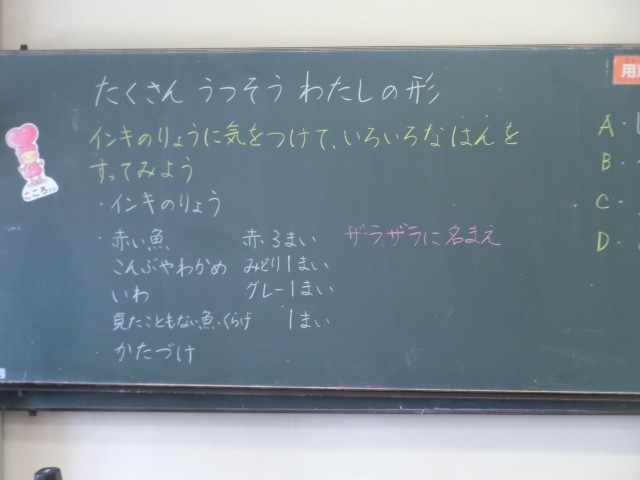 たくさん うつそう わたしの形
インキのりょうに気をつけて、いろいろなはんを
すってみよう
・インキのりょう
・赤い魚 赤・3まい ザラザラに名まえ
こんぶやわかめ みどり1まい
いわ グレー1まい
見たこともない魚・くらげ 1まい
・かたづけ
こころ
A・
B・
C・
D・